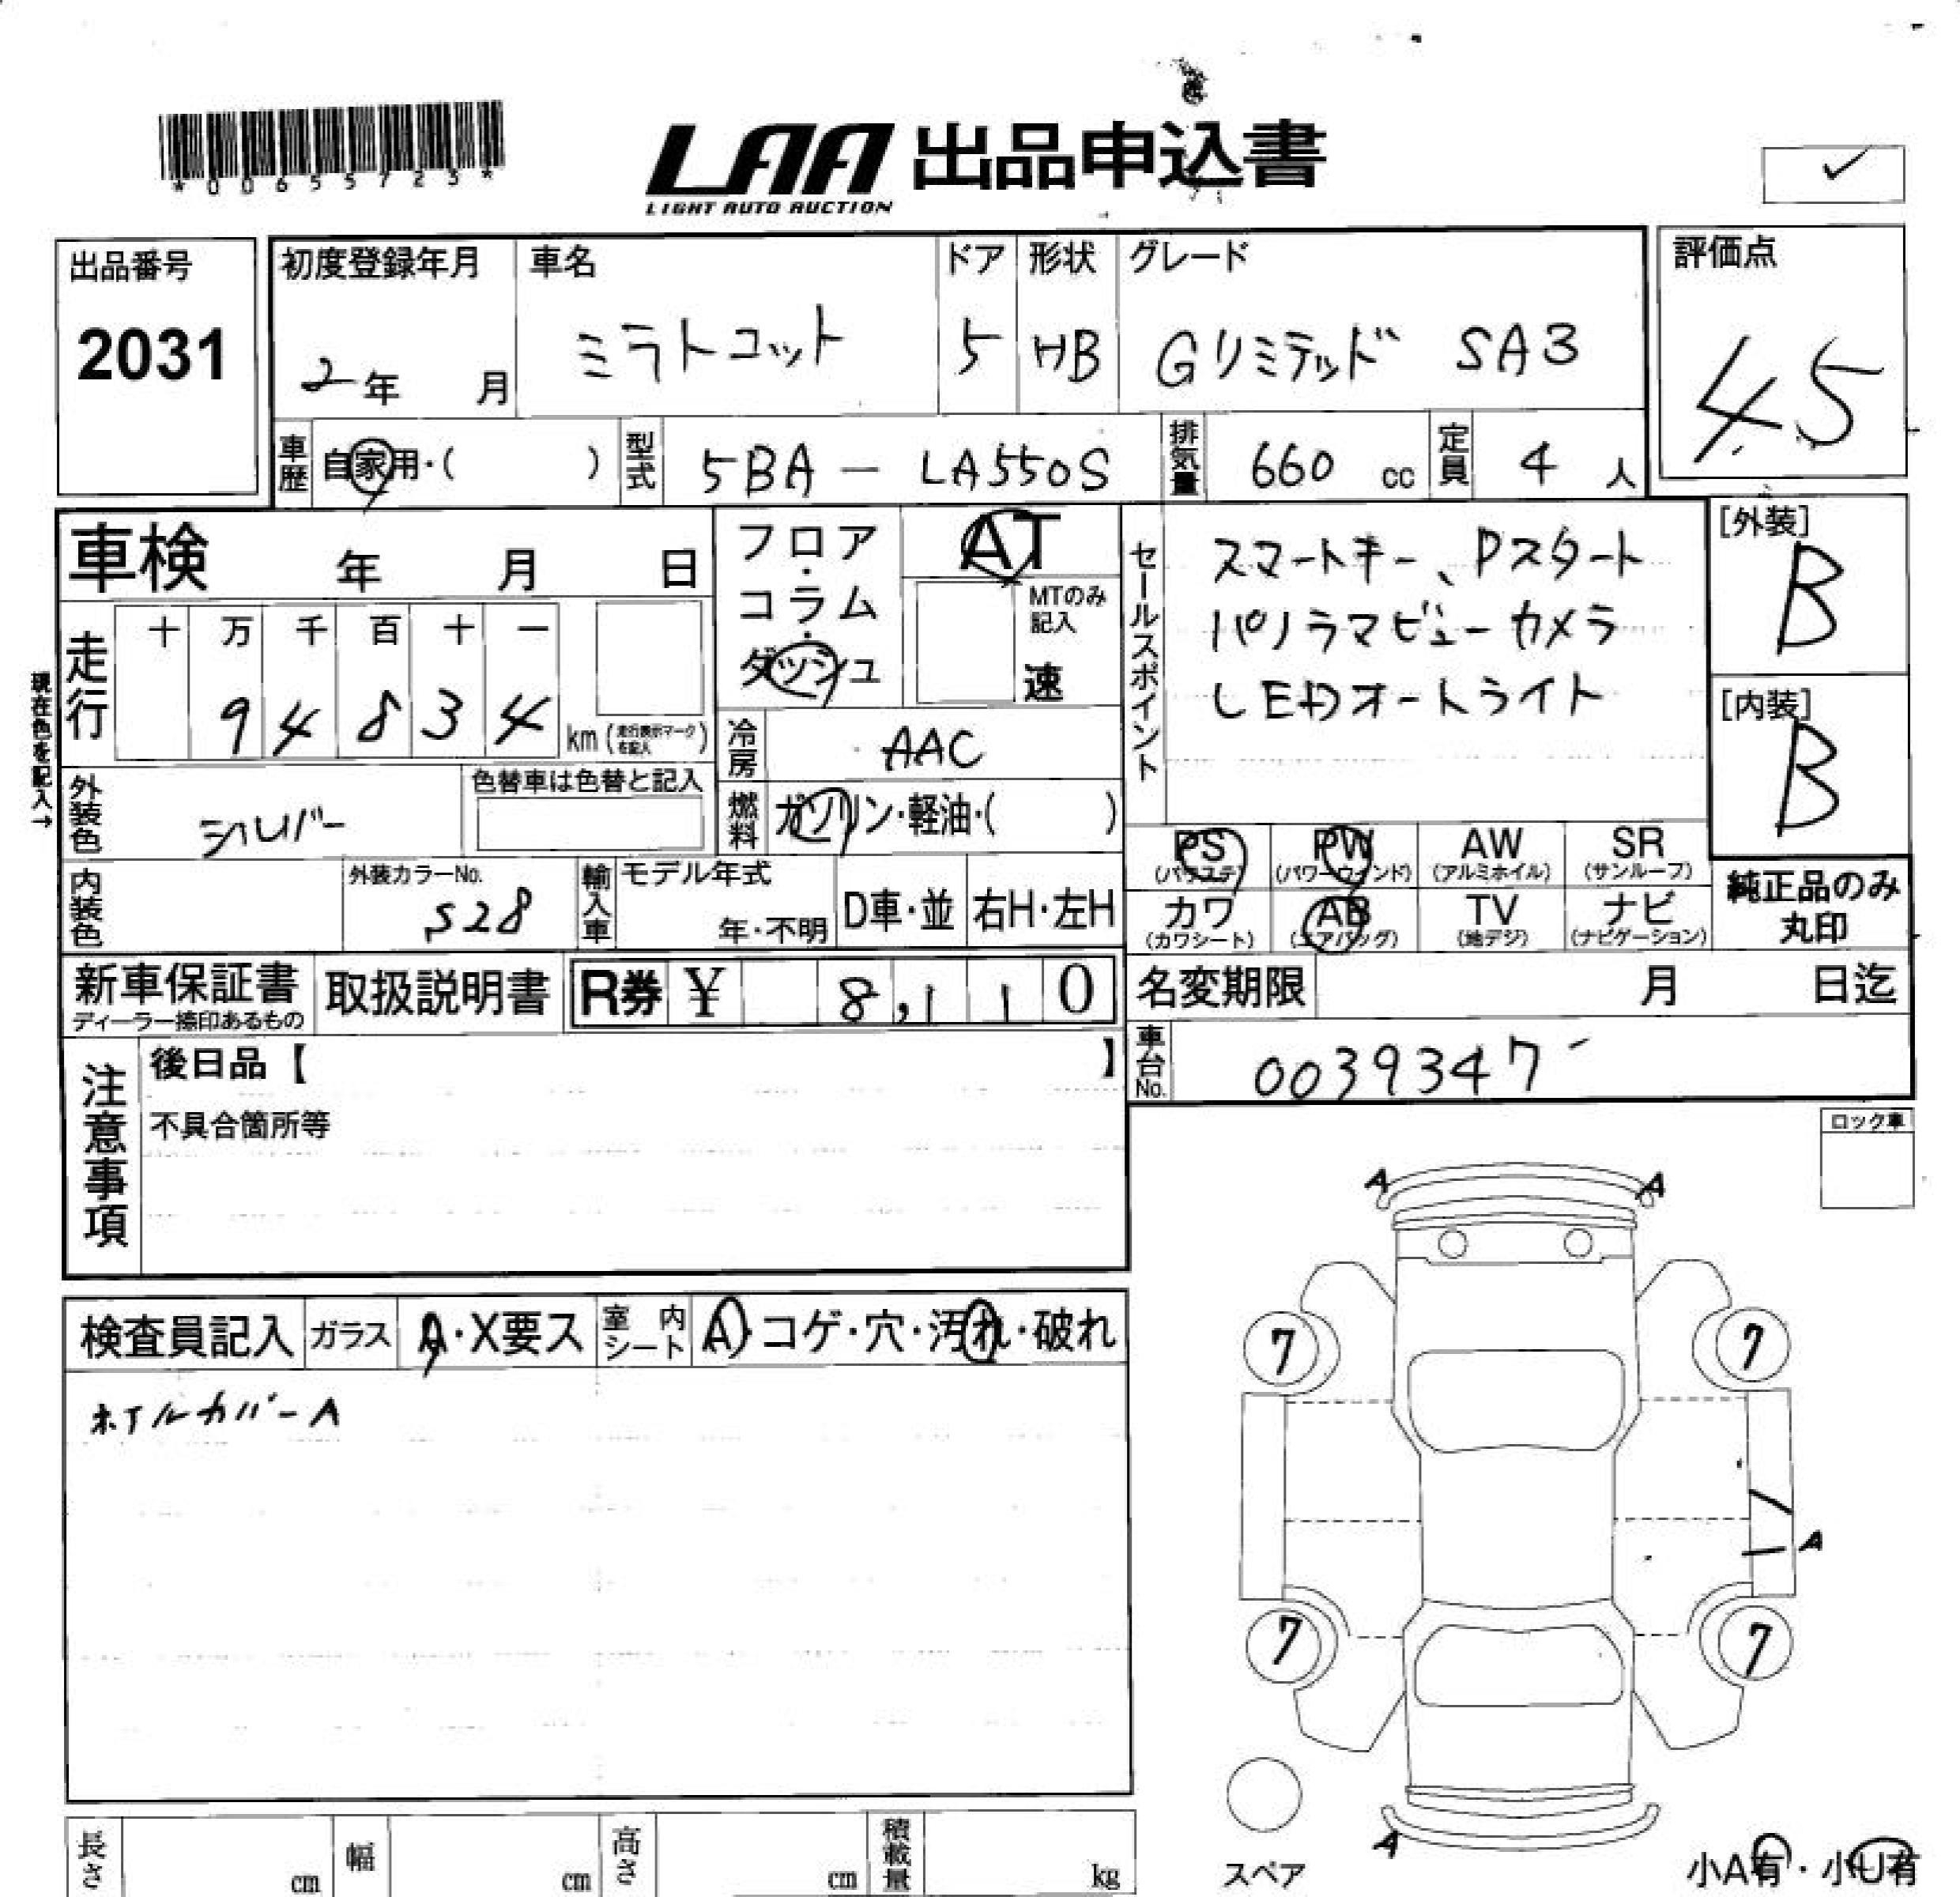 *00655723*
LAA 出品申込書
LIGHT AUTO AUCTION
✓
出品番号
2031
初度登録年月
2年 月
車名
ミラトコット
ドア
5
形状
HB
グレード
Gリミテッド SA3
評価点
4.5
車歴 自家用・( )
型式 5BA - LA550S
排気量 660 cc
定員 4 人
車検 年 月 日
フロア・コラム・ダッシュ
AT
MTのみ記入
速
セールスポイント
スマートキー、Pスタート
パノラマビューカメラ
LEDオートライト
[外装]
B
[内装]
B
現在色を記入→
走行
十 万 千 百 十 一
9 4 8 3 4 km (走行表示マークを記入)
冷房 AAC
外装色 シルバー
色替車は色替と記入
燃料 ガソリン・軽油・( )
PS (パワステ) PW (パワーウィンド) AW (アルミホイル) SR (サンルーフ)
カワ (カワシート) AB (エアバッグ) TV (地デジ) ナビ (ナビゲーション)
純正品のみ
丸印
内装色
外装カラーNo.
S28
輸入車 モデル年式
年・不明
D車・並
右H・左H
新車保証書
ディーラー捺印あるもの
取扱説明書
R券 ¥ 8,110
名変期限 月 日迄
車台No. 0039347
注意事項
後日品【 】
不具合箇所等
ロック車
検査員記入
ガラス A・X要ス
室内シート A・コゲ・穴・汚れ・破れ
ホイルカバーA
A A
7 7
A
7 7
A
スペア
小A有・小U有
長さ cm
幅 cm
高さ cm
積載量 kg